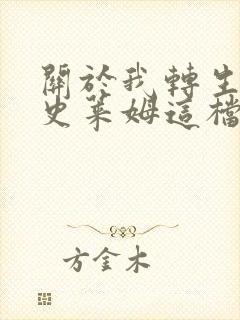 關於我轉生
史萊姆這檔
方金木